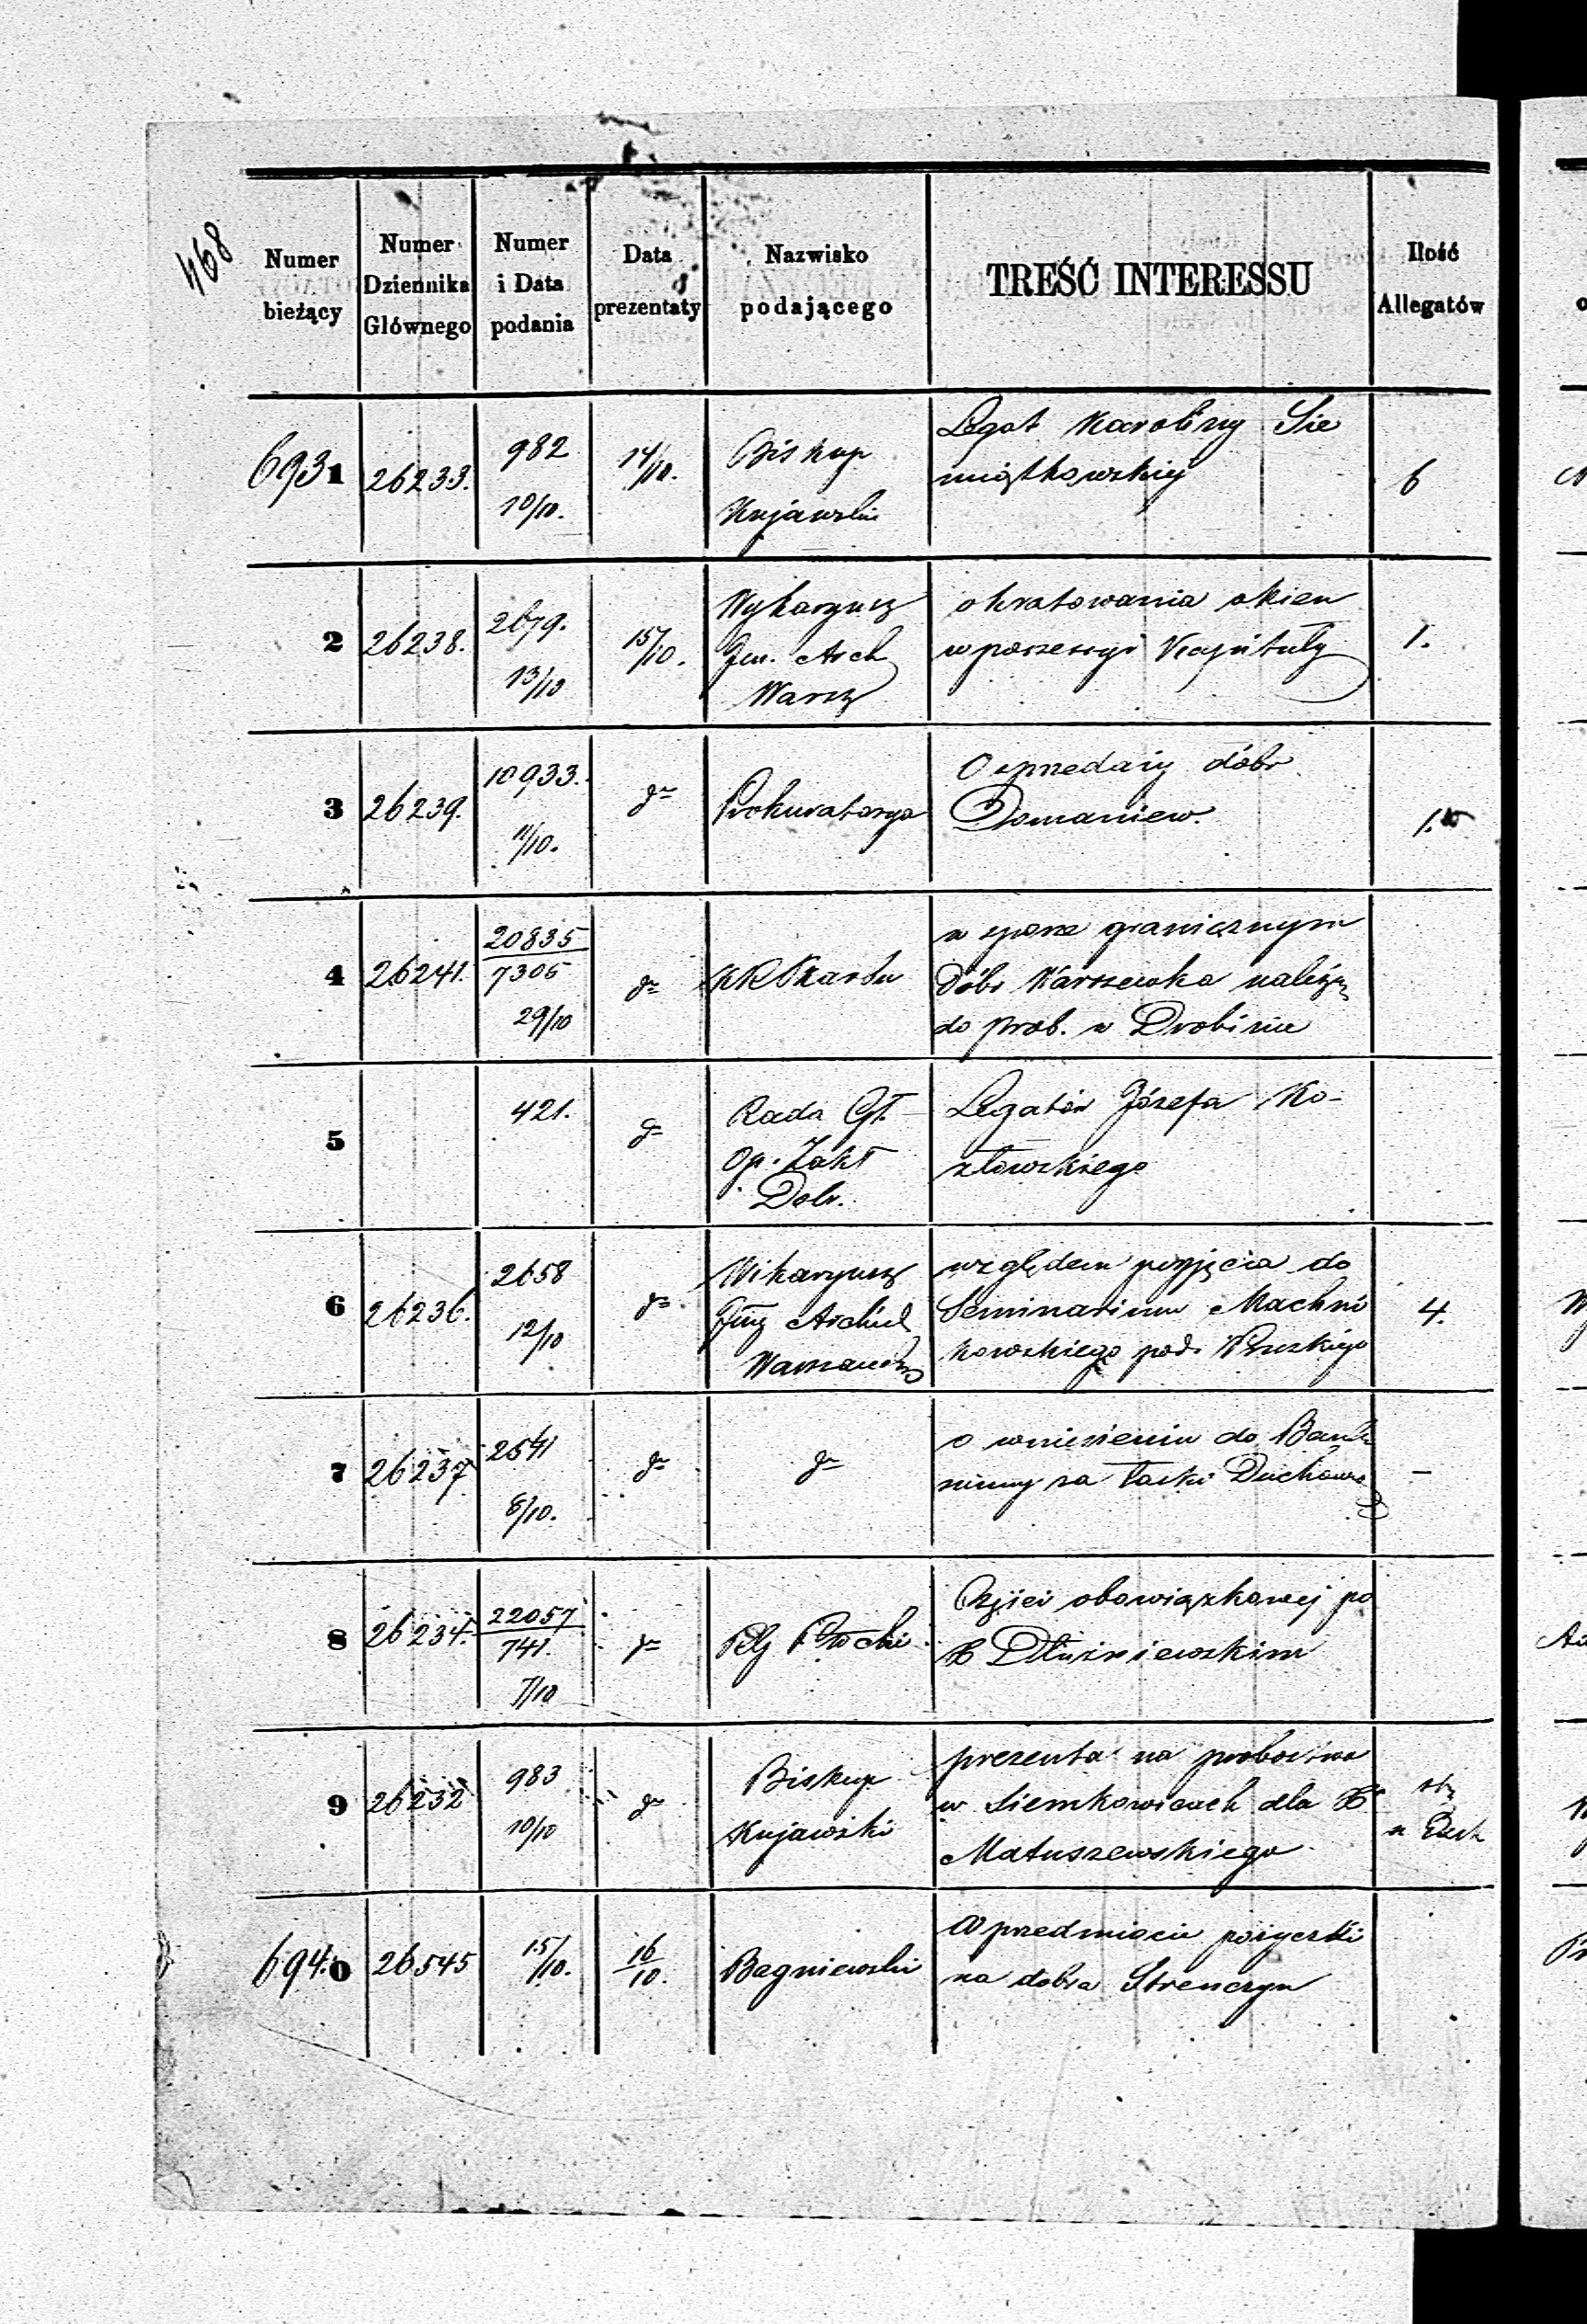 468
Numer bieżący
Numer Dziennika Głównego
Numer i Data podania
Data prezentaty
Nazwisko podającego
TREŚĆ INTERESSU
Ilość Allegatów
6931 26233. 982 10/10. 14/10. Biskup Kujawski
Legat Karoliny Sie
miątkowskiej
6
2 26238. 2679. 13/10 15/10. Wykaryusz Gen. Arch Warsz
okratowania okien
w possessyi Kapituły
1.
3 26239. 10933. 11/10. do Prokuratorya
O sprzedaży dóbr
Domaniew.
1.
4 26241. 20835 7305 29/10 do KR Skarbu
w sporze granicznym
Dóbr Warszewka należą
do prob. w Drobinie
5 421. do Rada Gł. Op. Zakł Dobr.
Legatów Józefa Ko-
złowskiego
6 26236. 2658 12/10 do Wikaryusz Archid
względem przyjęcia do
Seminarium Machni
kowskiego pod. Pruskiego
4.
7 26237 2541 8/10. do do
o wniesieniu do Banku
summy za Duchowne
–
8 26234. 22057 741. 7/10 do RG Płocki
Części obowiązkowej po
X Dłużniewskim
9 26232 983 10/10 do Biskup Kujawski
prezenta na probostwo
w Siemkowicach dla Xa
Matuszewskiego
6940 26545 15/10. 16/10. Bagniewski
W przedmiocie pożyczki
na dobra Strenczyn